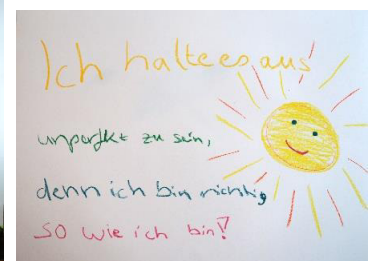 Ich halte es aus
unperfekt zu sein,
denn ich bin richtig
so wie ich bin!